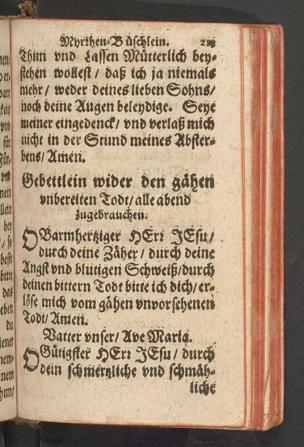 Myrrhen-Büschlein.
Thun vnd Lassen Mütterlich bey-
stehen wollest / daß ich ja niemals
mehr / weder deines lieben Sohns /
noch deine Augen beleydige. Seye
meiner eingedenck / vnd verlaß mich
nicht in der Stund meines Abster-
bens / Amen.
Gebettlein wider den gähen
vnbereiten Todt / alle abend
zugebrauchen.
O Barmhertziger HErr JEsu /
durch deine Zäher / durch deine
Angst vnd blutigen Schweiß / durch
deinen bittern Todt bitte ich dich / er-
löse mich vom gähen vnvorsehenen
Todt / Amen.
Vatter vnser / Ave Maria.
O Gütigster HErr JEsu / durch
dein schmertzliche vnd schmäh-
liche